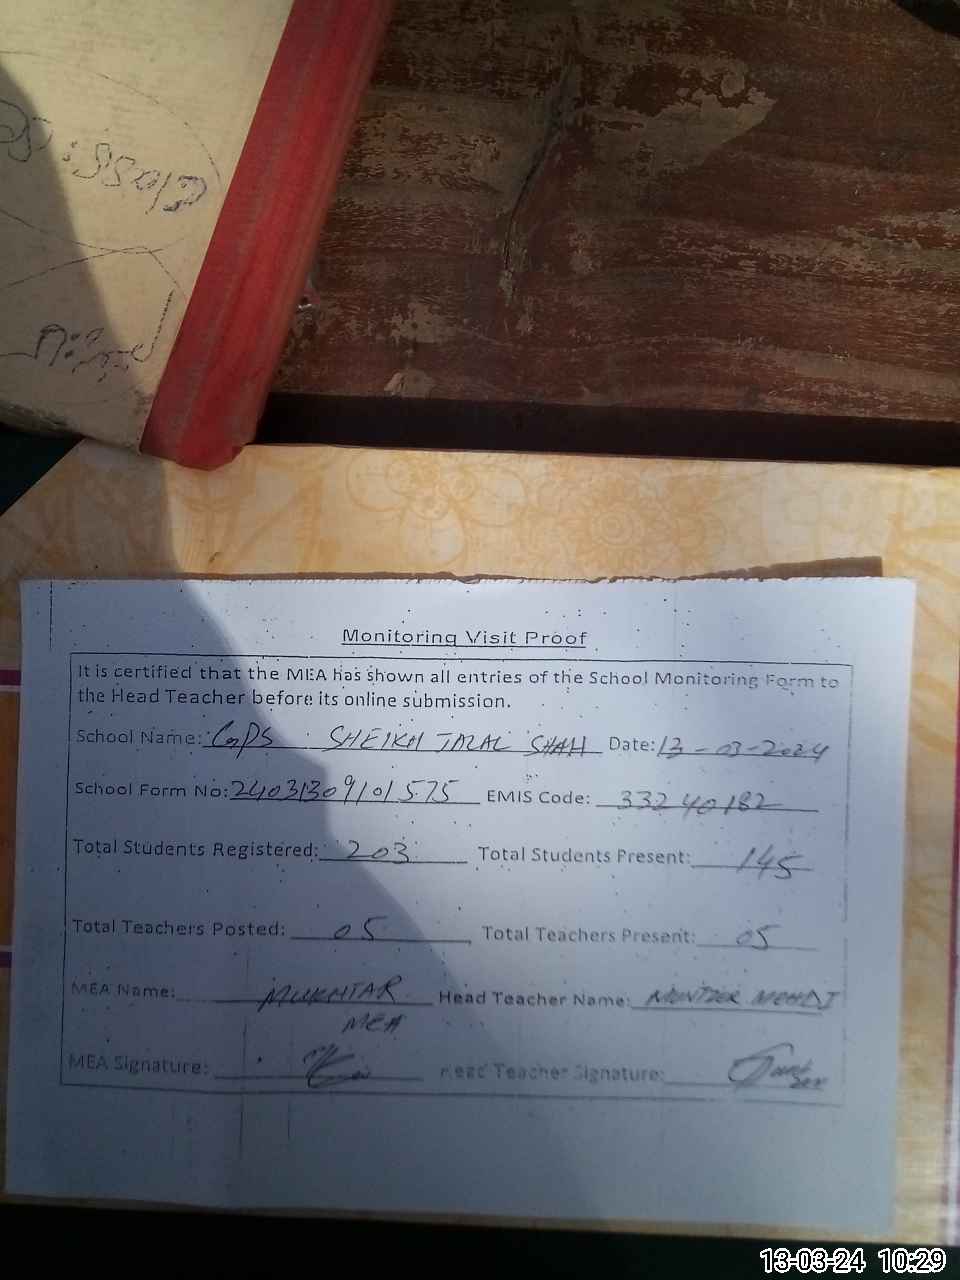 Class:
Monitoring Visit Proof
It is certified that the MEA has shown all entries of the School Monitoring Form to
the Head Teacher before its online submission.
School Name: GPS SHEIKH JALAL SHAH Date: 13-03-2024
School Form No: 24031309101575 EMIS Code: 33240182
Total Students Registered: 203 Total Students Present: 145
Total Teachers Posted: 05 Total Teachers Present: 05
MEA Name: MUKHTAR Head Teacher Name: MUNTZER MEHDI
MEA
MEA Signature: Head Teacher Signature:
13-03-24 10:29